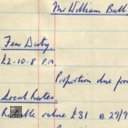 Mr William Ball
Feu Duty
£2-10-8 p.a.
Proportion due fro
Local Rates
R able value £31 @ 29/9